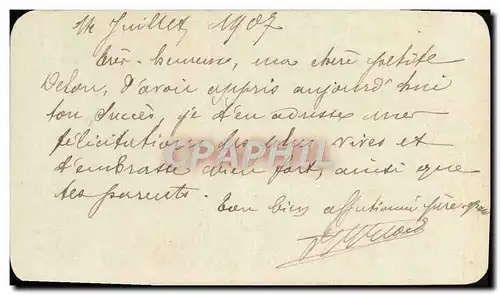 Juillet 1907
Très-heureuse, ma chère petite
d'avoir appris aujourd'hui
ton succès, je t'en adresse mes
félicitations les plus vives et
t'embrasse bien fort, ainsi que
tes parents.
Ton bien affectionné
CPAPHIL